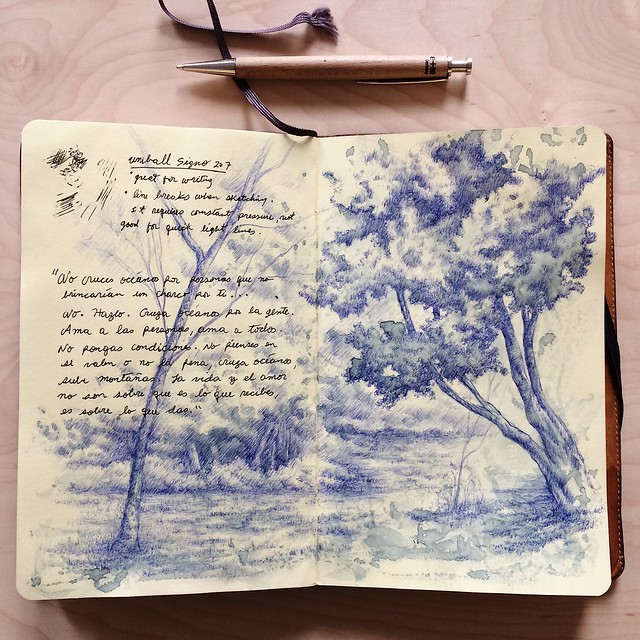 uniball Signo 207
• great for writing
• line breaks when sketching.
it requires constant pressure, not
good for quick light lines.
"No cruces océano por personas que no
brincarían un charco por ti...
No. Hazlo. Cruza océanos por la gente.
Ama a las personas, ama a todos.
No pongas condiciones. No pienses en
si valen o no la pena, cruza océanos,
sube montañas. La vida y el amor
no son sobre que es lo que recibes,
es sobre lo que das."